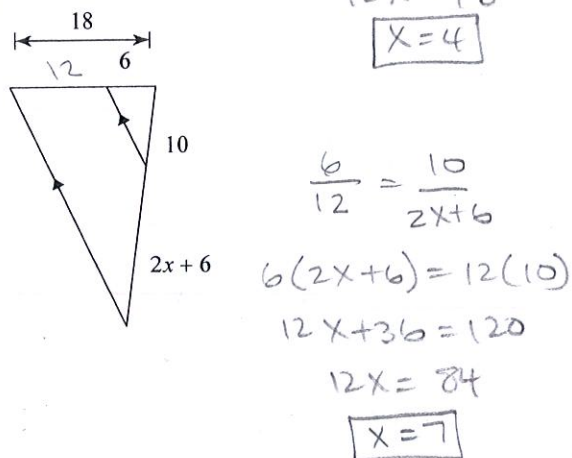 18
X = 4
12 6
10
2x + 6
6/12 = 10/2X+6
6(2X+6) = 12(10)
12X+36 = 120
12X = 84
X = 7